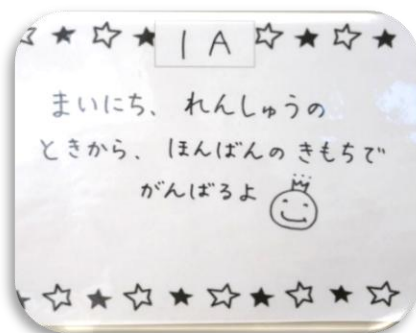 1A
まいにち、れんしゅうの
ときから、ほんばんのきもちで
がんばるよ